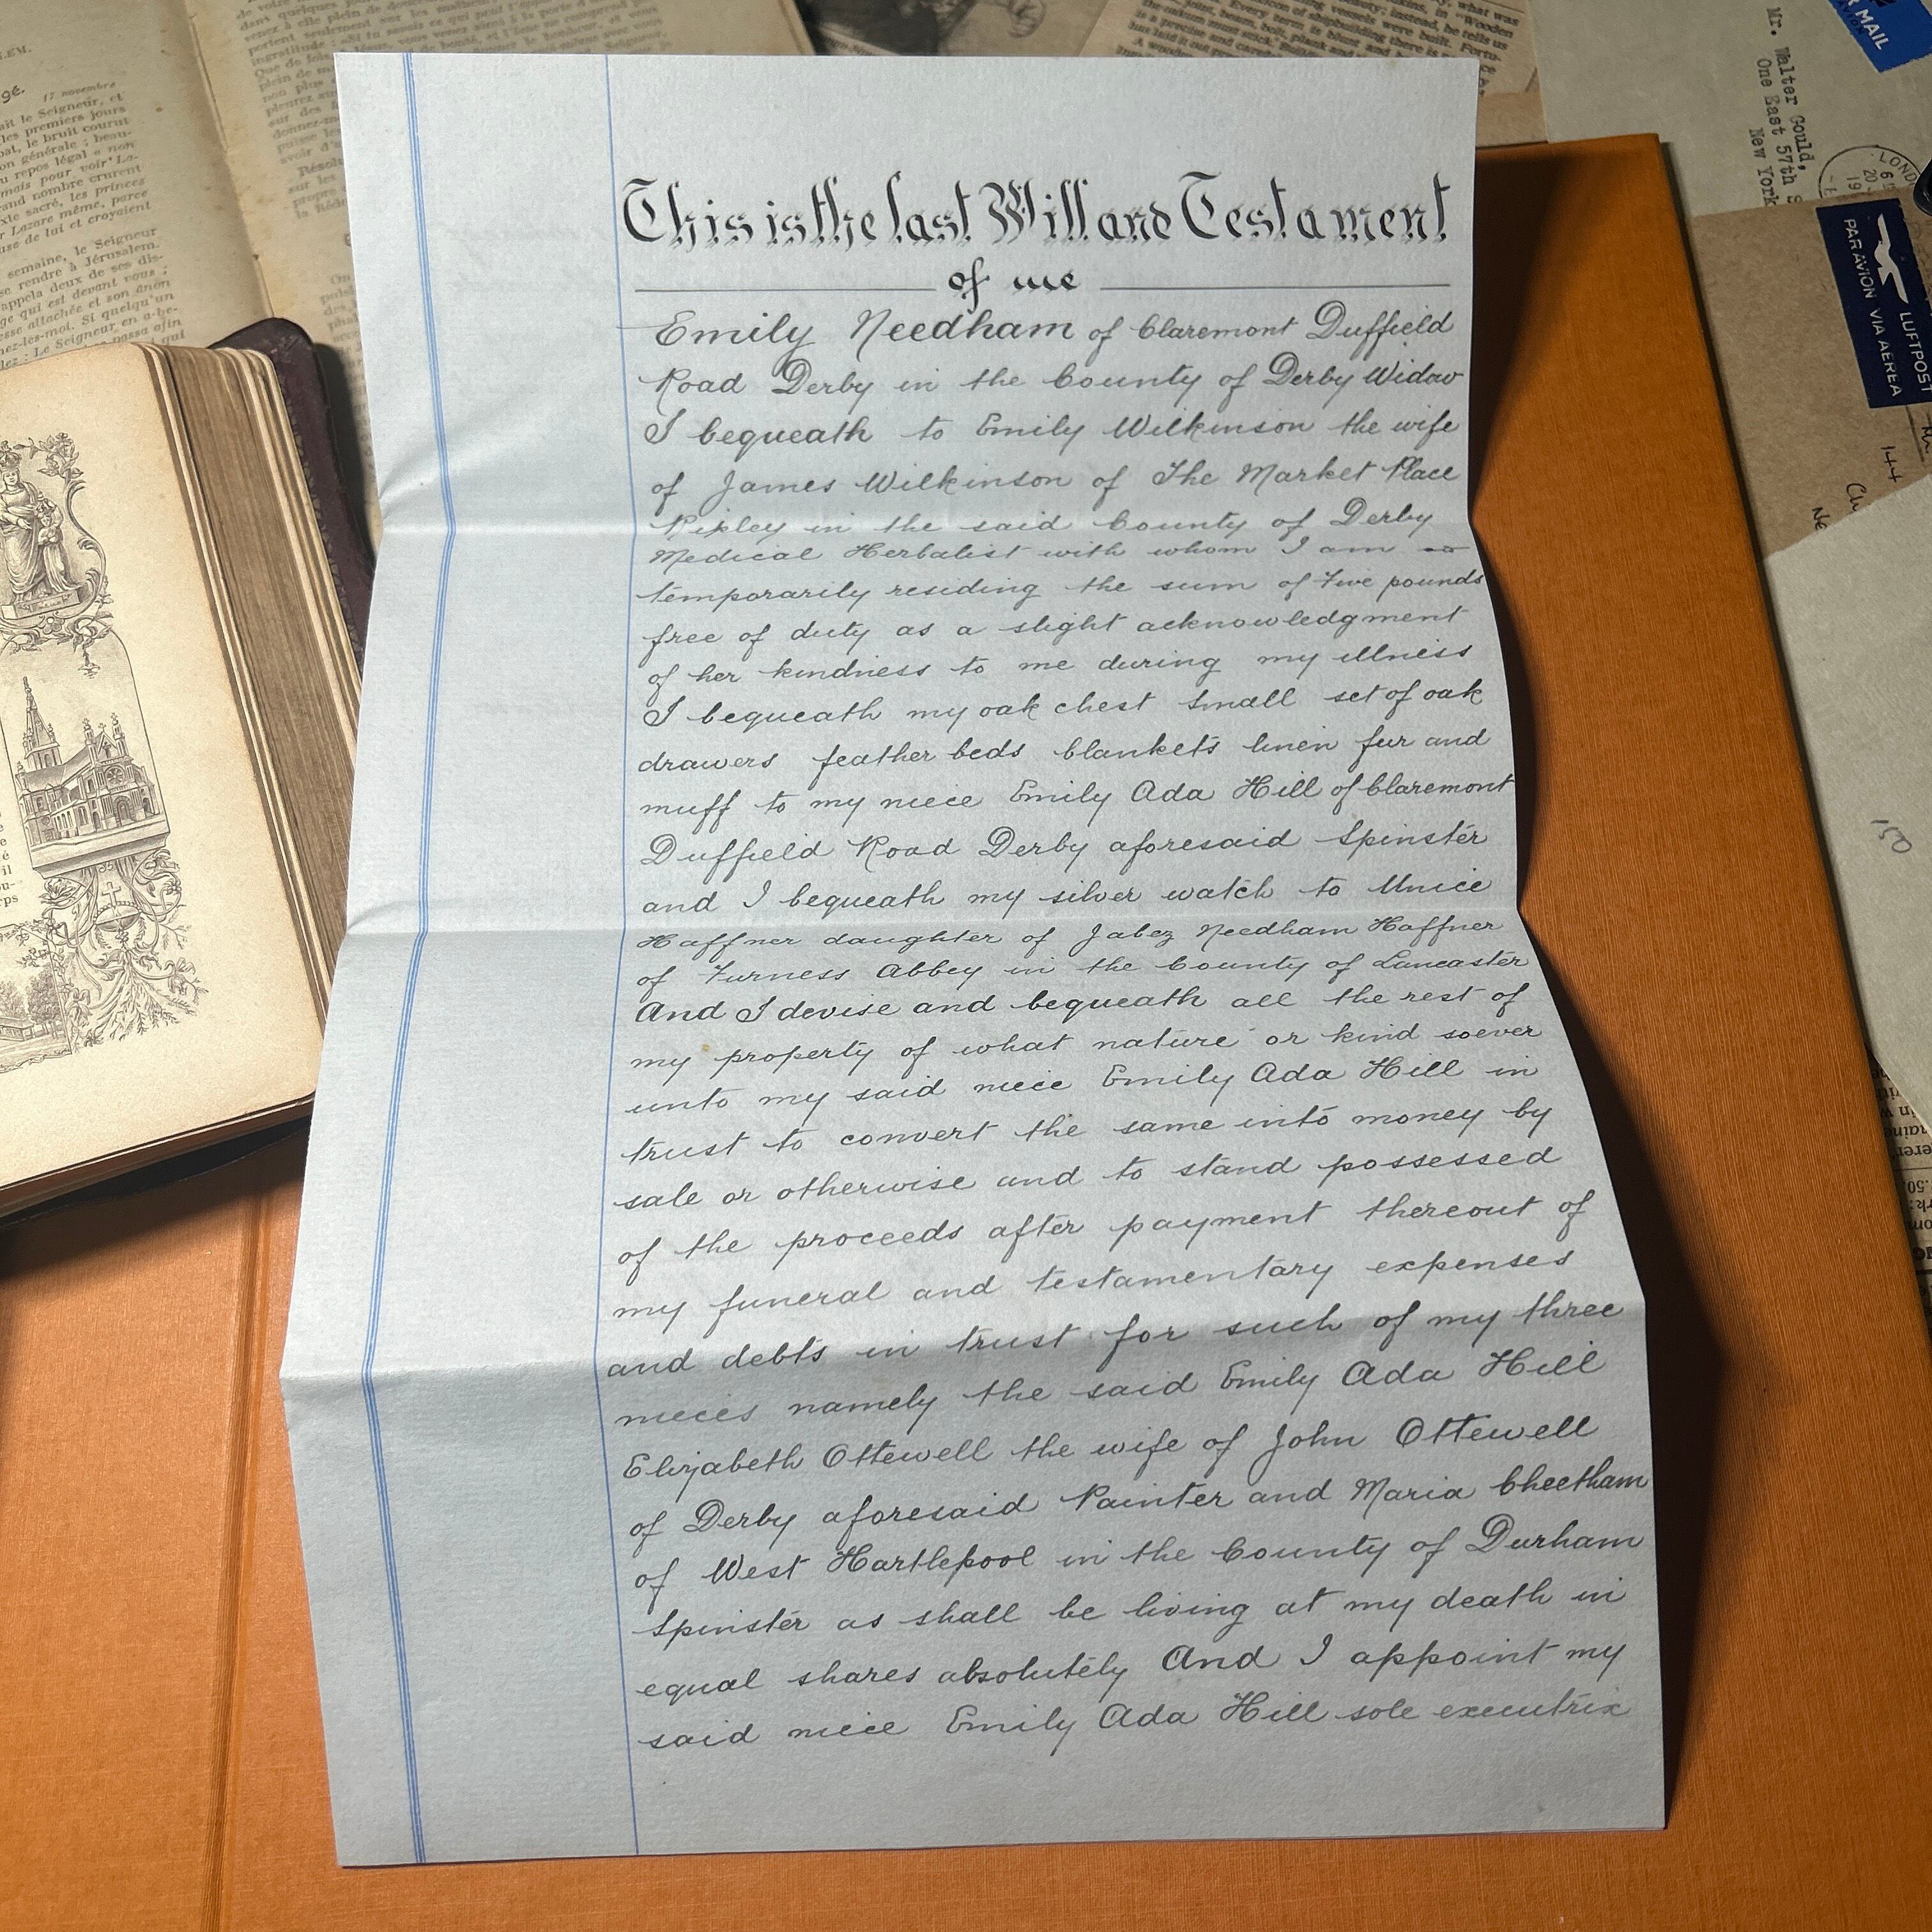 This is the last Will and Testament
of me
Emily Needham of Claremont Duffield
Road Derby in the County of Derby Widow
I bequeath to Emily Wilkinson the wife
of James Wilkinson of The Market Place
Ripley in the said County of Derby
Medical Herbalist with whom I am
temporarily residing the sum of Five pounds
free of duty as a slight acknowledgment
of her kindness to me during my illness
I bequeath my oak chest small set of oak
drawers feather beds blankets linen fur and
muff to my niece Emily Ada Hill of Claremont
Duffield Road Derby aforesaid Spinster
and I bequeath my silver watch to Unice
Haffner daughter of Jabez Needham Haffner
of Furness Abbey in the County of Lancaster
And I devise and bequeath all the rest of
my property of what nature or kind soever
unto my said niece Emily Ada Hill in
trust to convert the same into money by
sale or otherwise and to stand possessed
of the proceeds after payment thereout of
my funeral and testamentary expenses
and debts in trust for such of my three
nieces namely the said Emily Ada Hill
Elizabeth Ottewell the wife of John Ottewell
of Derby aforesaid Painter and Maria Cheetham
of West Hartlepool in the County of Durham
Spinster as shall be living at my death in
equal shares absolutely And I appoint my
said niece Emily Ada Hill sole executrix
17 novembre
le Seigneur
se rendre à Jérusalem.
AIR MAIL
Mr. Walter Gould,
One East 57th S
New York
LUFTPOST
PAR AVION VIA AEREA
144
150